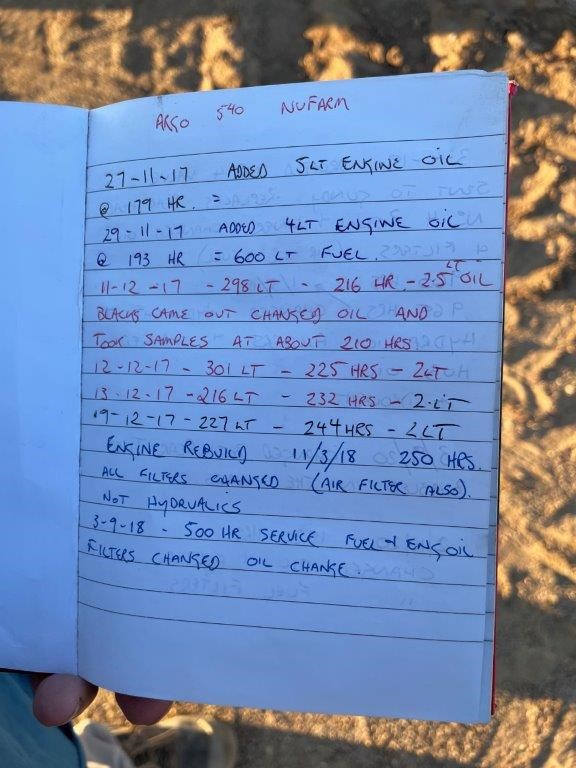 ARGO 540 NUFARM
27-11-17 ADDED 5LT ENGINE OIL
@ 179 HR. =
29-11-17 ADDED 4LT ENGINE OIL
@ 193 HR = 600 LT FUEL.
11-12-17 - 298 LT - 216 HR - 2.5 LT OIL
BLACKS CAME OUT CHANGED OIL AND
TOOK SAMPLES AT ABOUT 210 HRS
12-12-17 - 301 LT - 225 HRS - 2LT
13-12-17 - 216 LT - 232 HRS - 2.LT
19-12-17 - 227 LT - 244 HRS - 2LT
ENGINE REBUILD 11/3/18 250 HRS.
ALL FILTERS CHANGED (AIR FILTER ALSO).
NOT HYDRUALICS
3-9-18 - 500 HR SERVICE FUEL & ENG OIL
FILTERS CHANGED OIL CHANGE.